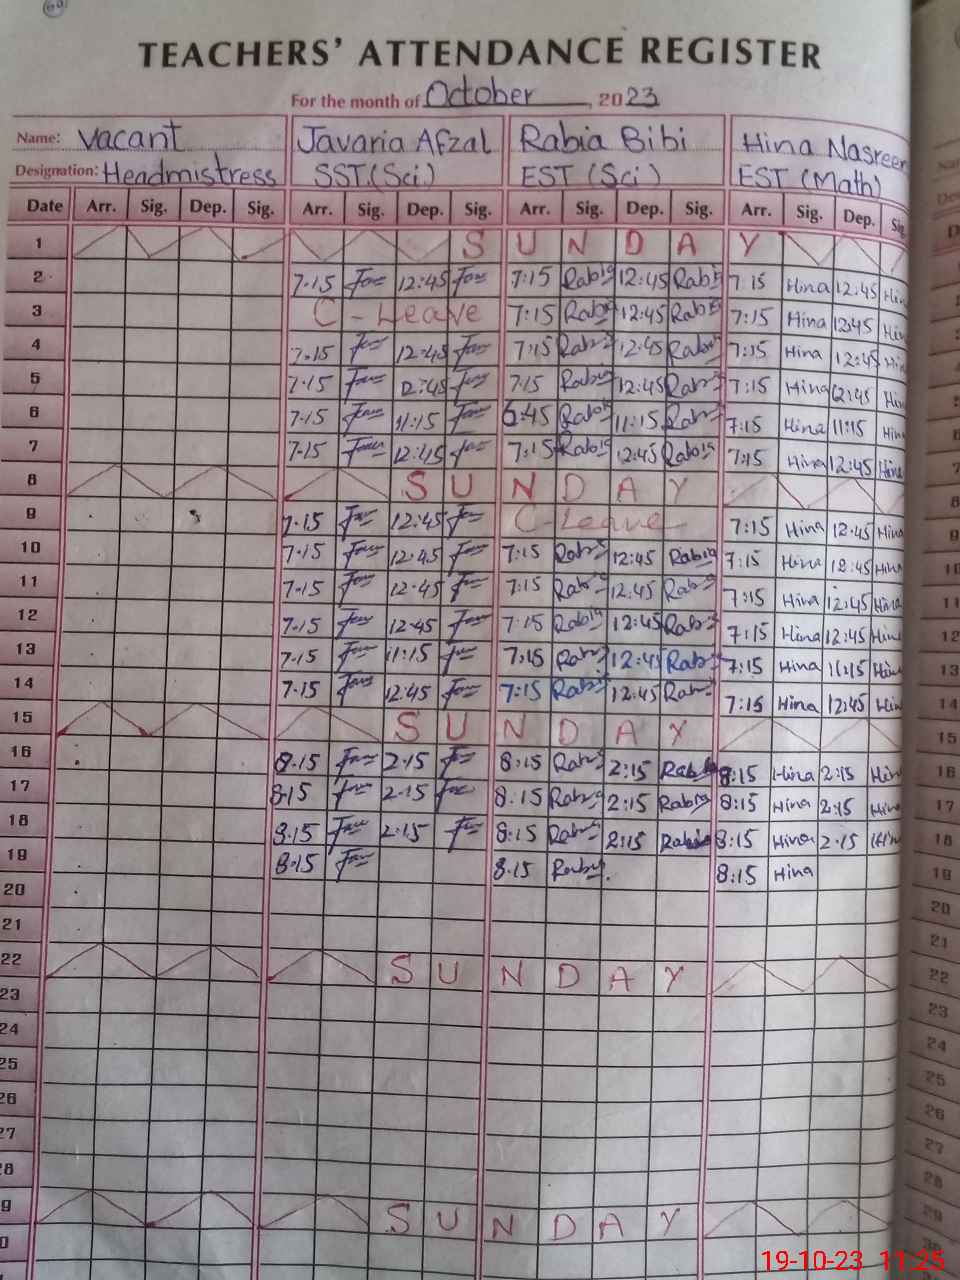 TEACHERS' ATTENDANCE REGISTER
For the month of October, 2023
Name: Vacant Javaria Afzal Rabia Bibi Hina Nasreen
Designation: Headmistress SST.(Sci) EST (Sci) EST (Math)
Date Arr. Sig. Dep. Sig. Arr. Sig. Dep. Sig. Arr. Sig. Dep. Sig. Arr. Sig. Dep.
1 S U N D A Y
2 7.15 12:45 7:15 Rabia 12:45 Rabia 7:15 Hina 12:45 Hin
3 C-Leave 7:15 Rabia 12:45 Rabia 7:15 Hina 12:45 Hin
4 7.15 12:45 7:15 Rabia 12:45 Rabia 7:15 Hina 12:45 Hin
5 7.15 12:45 7:15 Rabia 12:45 Rabia 7:15 Hina 12:45 Hin
6 7.15 11:15 6:45 Rabia 11:15 Rabia 7:15 Hina 11:15 Hin
7 7.15 12:45 7:15 Rabia 12:45 Rabia 7:15 Hina 12:45 Hina
8 S U N D A Y
9 7.15 12:45 C-Leave 7:15 Hina 12:45 Hina
10 7.15 12:45 7:15 Rabia 12:45 Rabia 7:15 Hina 12:45 Hina
11 7.15 12:45 7:15 Rabia 12:45 Rabia 7:15 Hina 12:45 Hina
12 7.15 12:45 7:15 Rabia 12:45 Rabia 7:15 Hina 12:45 Hina
13 7.15 11:15 7:15 Rabia 12:45 Rabia 7:15 Hina 11:15 Hina
14 7.15 12:45 7:15 Rabia 12:45 Rabia 7:15 Hina 12:45 Hin
15 S U N D A Y
16 8.15 2.15 8:15 Rabia 2:15 Rabia 8:15 Hina 2:15 Hin
17 8.15 2.15 8.15 Rabia 2:15 Rabia 8:15 Hina 2:15 Hin
18 8.15 2.15 8:15 Rabia 2:15 Rabia 8:15 Hina 2.15 Hin
19 8.15 8.15 Rabia 8:15 Hina
20
21
22 S U N D A Y
23
24
25
26
27
28
29 S U N D A Y
19-10-23 11:25